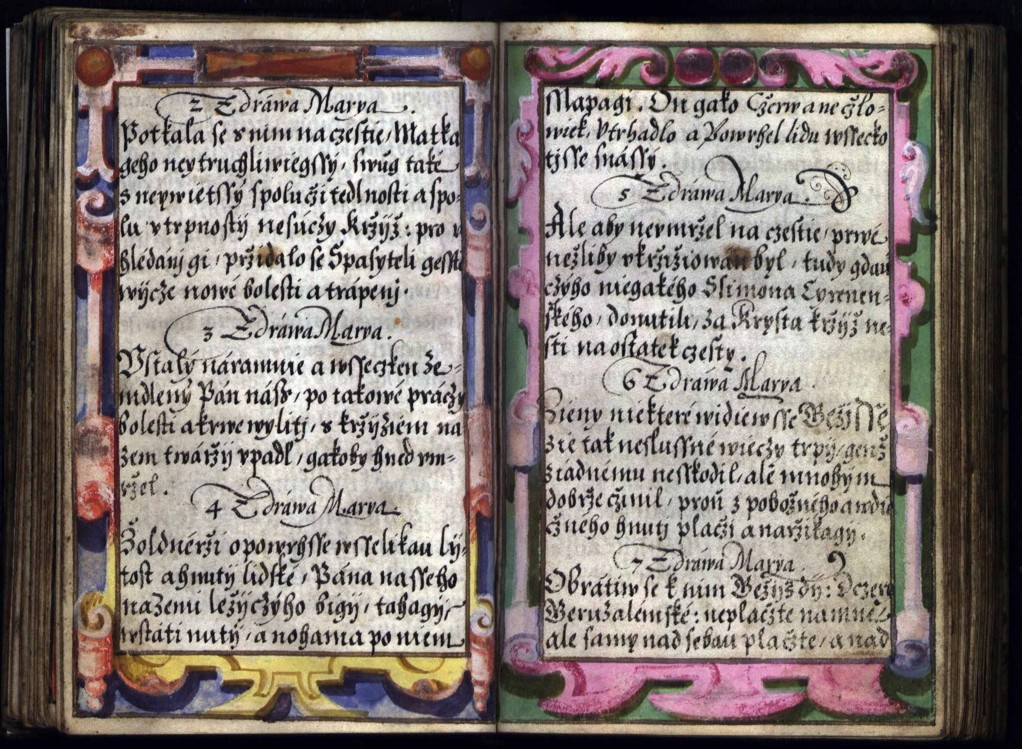 2 Zdráwa Marya.
Potkala se s nim na czestie, Matka
geho neytruchliwiegssy, swug také
s neywietssý spolu žitedlnosti a spo-
lu vtrpnostý nesúczý Kržýž: pro v
hledánj gi, pržidalo se Spasyteli gesstie
wýcze nowé bolesti a trápenj.
3 Zdráwa Marya.
Vstalý náramnie a wsseczken ze-
mdlený Pán náss, po takowé práczy
bolesti a krwe wylitj, s kržýžiem na
zem twáržij vpadl, gakoby hned vm-
ržel.
4 Zdráwa Marya
Žoldnérži opowrhsse wsselikau lý-
tost a hnutý lidské, Pána nasseho
na zemi ležýczýho bigij, tahagij,
wstáti nutý, a nohama po niem
Mapagi. On gako Czerw a ne czlo-
wiek, Vtrhadlo a Powrhel lidu wssecko
tisse snássý.
5 Zdráwa Marya
Ale aby nevmržel na czestie, prwé
nežliby vkržižiowán byl, tudy gdau-
czýho niegakého Ssimona Cyrenen-
ského, donutili, za Krysta kržýž ne-
sti na ostatek czesty.
6 Zdráwa Marya.
Ženy niekteré widiewsse Gežýsse
že tak neslussné wieczy trpij, genž
žiadnému nesskodil, ale mnohým
dobrže czinil, proň z pobožného a wdie-
czného hnutj plačzi a naržikagij.
7 Zdráwa Marya.
Obrátiw se k nim Gežýss dij: Dczery
Geruzalemské: neplačzte na mne,
ale samy nad sebau plačzte, a nad